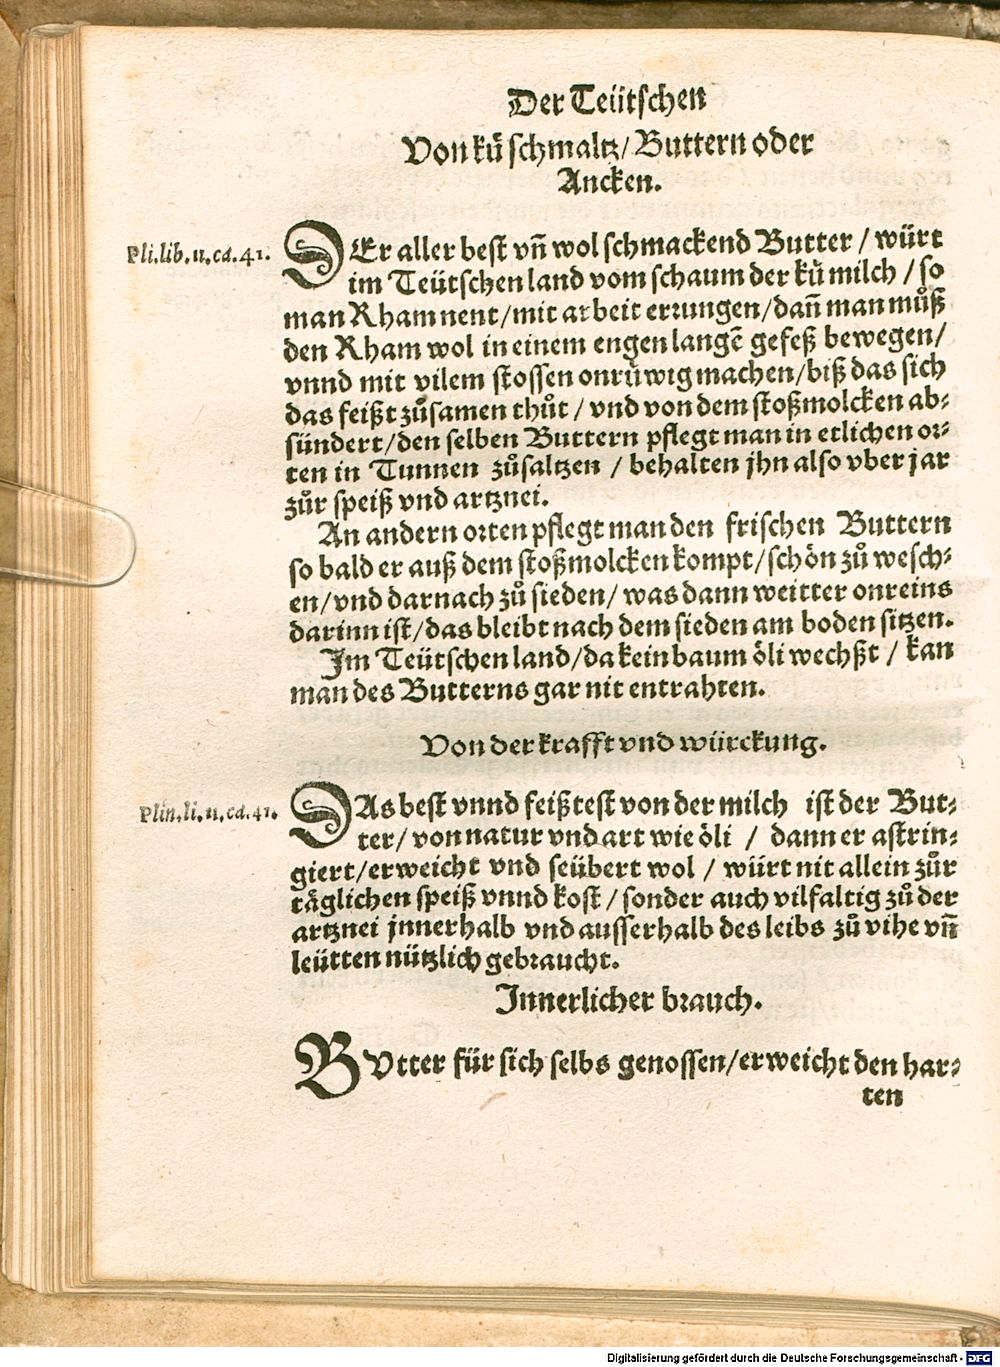 Der Teütschen
Von kuͤschmaltz/ Buttern oder
Ancken.
Pli.lib.11.ca.41.
DEr aller best vñ wolschmackend Butter / würt
im Teütschen land vom schaum der kuͤ milch / so
man Rham nent/mit arbeit errungen/dañ man muͦß
den Rham wol in einem engen langẽ gefeß bewegen/
vnnd mit vilem stossen onruͤwig machen/biß das sich
das feißt zuͦsamen thuͦt / vnd von dem stoßmolcken ab⸗
sündert/den selben Buttern pflegt man in etlichen or⸗
ten in Tunnen zuͦsaltzen / behalten jhn also vber jar
zuͦr speiß vnd artznei.
An andern orten pflegt man den frischen Buttern
so bald er auß dem stoßmolcken kompt/schön zuͦ wesch⸗
en/vnd darnach zuͦ sieden/ was dann weitter onreins
darinn ist/das bleibt nach dem sieden am boden sitzen.
Im Teütschen land/da kein baum öli wechßt / kan
man des Butterns gar nit entrahten.
Von der krafft vnd würckung.
Plin.li.11.ca.41.
DAs best vnnd feißtest von der milch ist der But⸗
ter/ von natur vnd art wie öli / dann er astrin⸗
giert/erweicht vnd seübert wol / würt nit allein zuͦr
täglichen speiß vnnd kost / sonder auch vilfaltig zuͦ der
artznei jnnerhalb vnd ausserhalb des leibs zuͦ vihe vñ
leütten nützlich gebraucht.
Innerlicher brauch.
BVtter für sich selbs genossen/erweicht den har⸗
ten
Digitalisierung gefördert durch die Deutsche Forschungsgemeinschaft - DFG